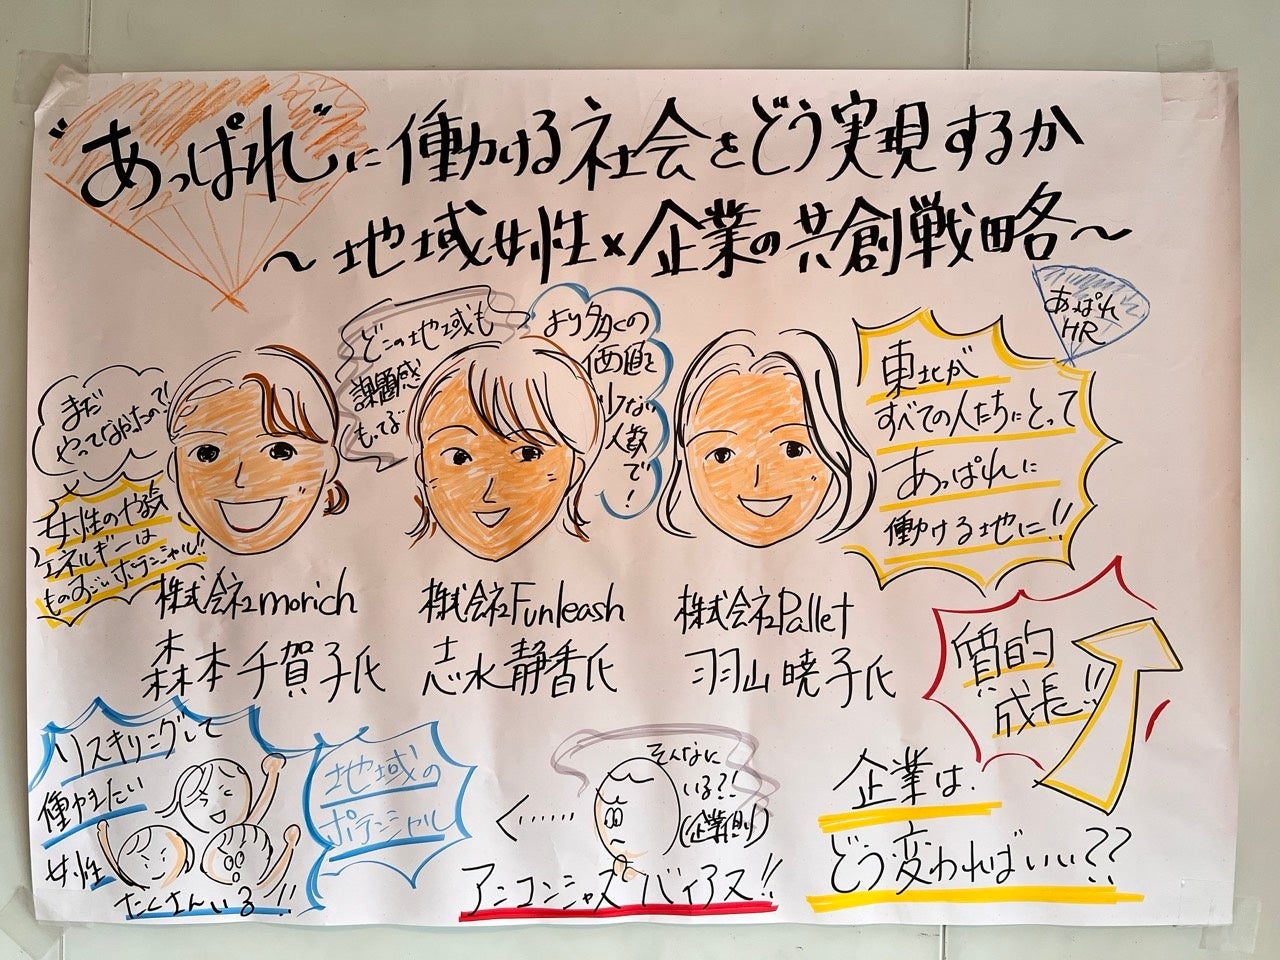 "あっぱれ"に働ける社会をどう実現するか
〜地域女性×企業の共創戦略〜
あっぱれ
HR
まだ
やってなかったの?!
女性のやる気
エネルギーは
ものすごいポテンシャル!!
どこの地域も
課題感
もってる
より多くの
価値を
少ない
人数
で!
東北が
すべての人たちにとって
あっぱれに
働ける地に!!
株式会社morich
森本千賀子氏
株式会社Funleash
志水静香氏
株式会社Pallet
羽山暁子氏
質的
成長!!
リスキリングして
働きたい
女性
たくさんいる!!
地域の
ポテンシャル
そんなに
いる?!
(企業側)
アンコンシャスバイアス!!
企業は
どう変わればいい??